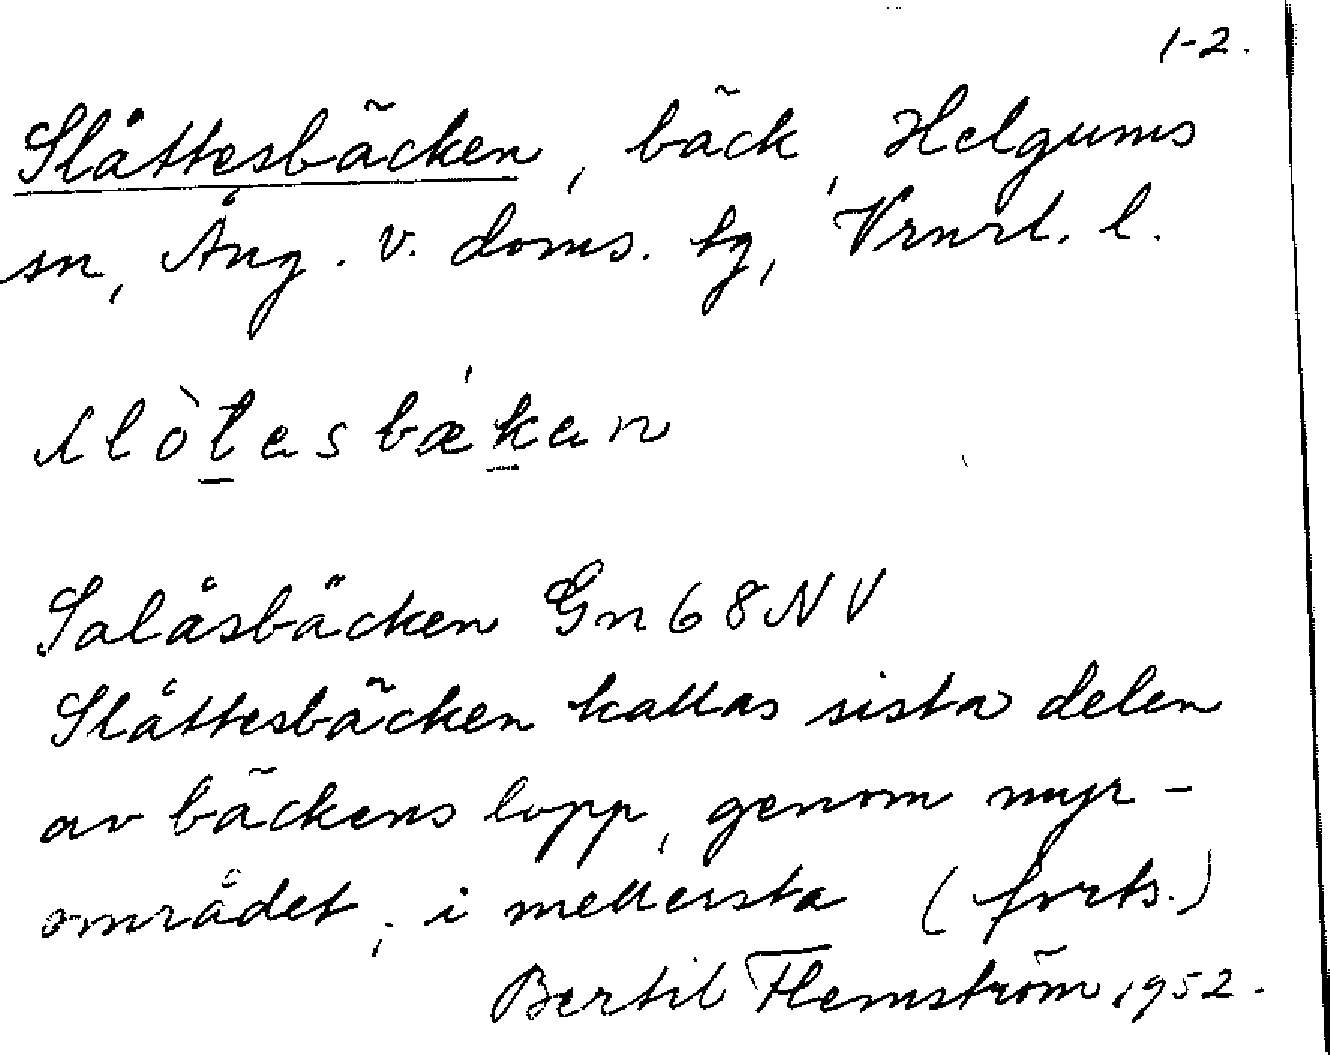 1-2.
Slåttesbäcken, bäck, Helgums
sn, Ång. v. doms. tg, Vrnrl. l.
slòt̲esbæ'k̲en
Salåsbäcken Gn 68 NV
Slåttesbäcken kallas sista delen
av bäckens lopp, genom myr-
området; i mellersta (forts.)
Bertil Flemström 1952.